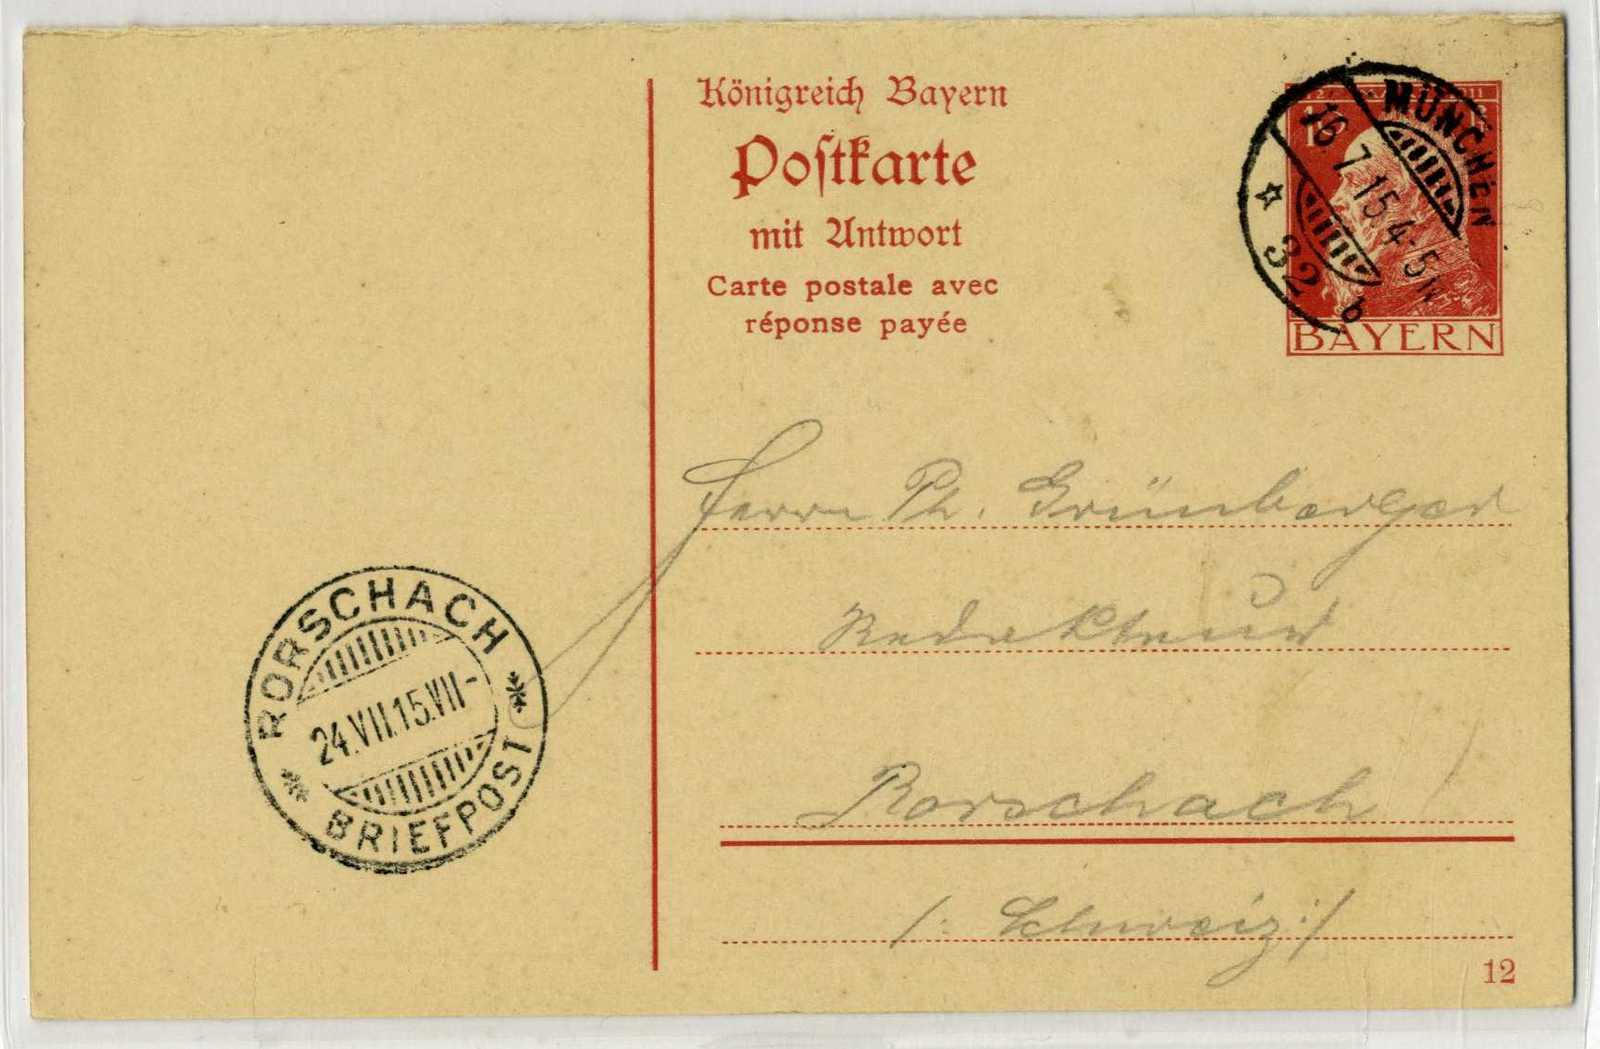 Königreich Bayern
Postkarte
mit Antwort
Carte postale avec
réponse payée
MÜNCHEN
16.7.15.4-5N
* 32 b
BAYERN
Herrn Ph. Grünberger
Redakteur
Rorschach
/: Schweiz :/
RORSCHACH
24.VII.15.VII-
BRIEFPOST
12